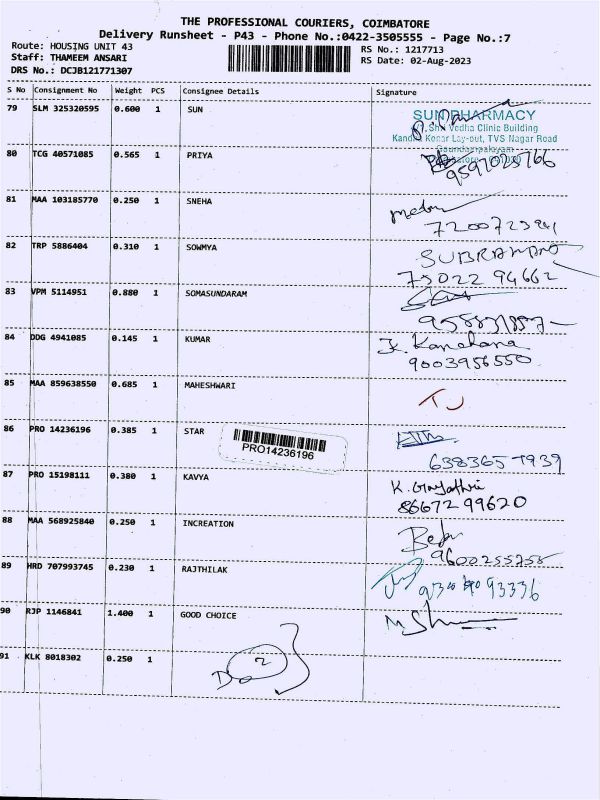 THE PROFESSIONAL COURIERS, COIMBATORE
Delivery Runsheet - P43 - Phone No.:0422-3505555 - Page No.:7
Route: HOUSING UNIT 43
RS No.: 1217713
Staff: THAMEEM ANSARI
RS Date: 02-Aug-2023
DRS No.: DCJB121771307
S No Consignment No Weight PCS Consignee Details Signature
79 SLM 325320595 0.600 1 SUN
SUN PHARMACY
Vedha Clinic Building
Konar Lay-out, TVS Nagar Road
80 TCG 40571085 0.565 1 PRIYA
81 MAA 103185770 0.250 1 SNEHA
82 TRP 5886404 0.310 1 SOWMYA
75022 94662
83 VPM 5114951 0.880 1 SOMASUNDARAM
84 DDG 4941085 0.145 1 KUMAR
Kanchana
9003956550
85 MAA 859638550 0.685 1 MAHESHWARI
TJ
86 PRO 14236196 0.385 1 STAR
PRO14236196
638365 7939
87 PRO 15198111 0.380 1 KAVYA
K. Gayathri
86672 99620
88 MAA 568925840 0.250 1 INCREATION
9600255755
89 HRD 707993745 0.230 1 RAJTHILAK
93336
90 RJP 1146841 1.400 1 GOOD CHOICE
91 KLK 8018302 0.250 1
2